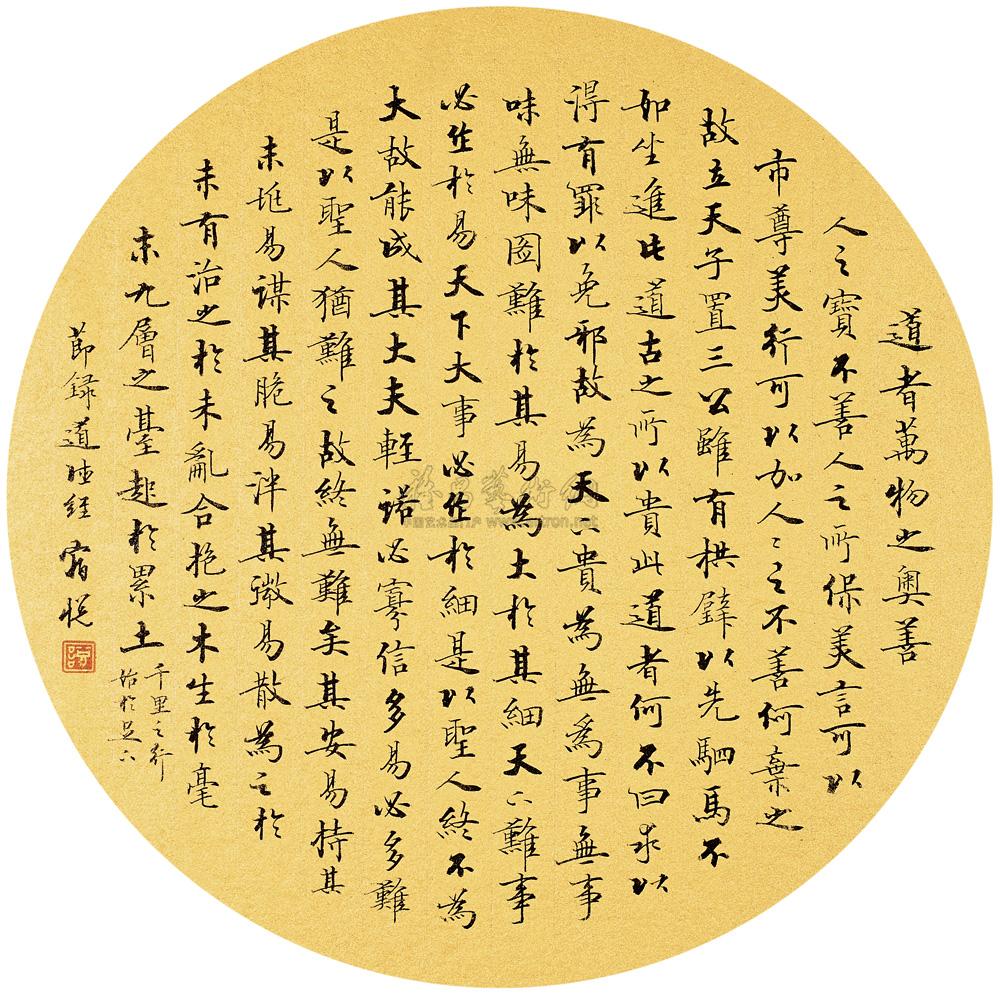 道者萬物之奧善
人之寶不善人之所保美言可以
市尊美行可以加人〻之不善何棄之
故立天子置三公雖有栱璧以先駟馬不
如坐進此道古之所以貴此道者何不曰求以
得有罪以免邪故為天下貴為無為事無事
味無味圖難於其易為大於其細天下難事
必作於易天下大事必作於細是以聖人終不為
大故能成其大夫輕諾必寡信多易必多難
是以聖人猶難之故終無難矣其安易持其
未兆易謀其脆易泮其微易散為之於
未有治之於未亂合抱之木生於毫
末九層之臺起於累土
千里之行
始於足下
節錄道德經 悅
雅昌藝術網
www.artron.net